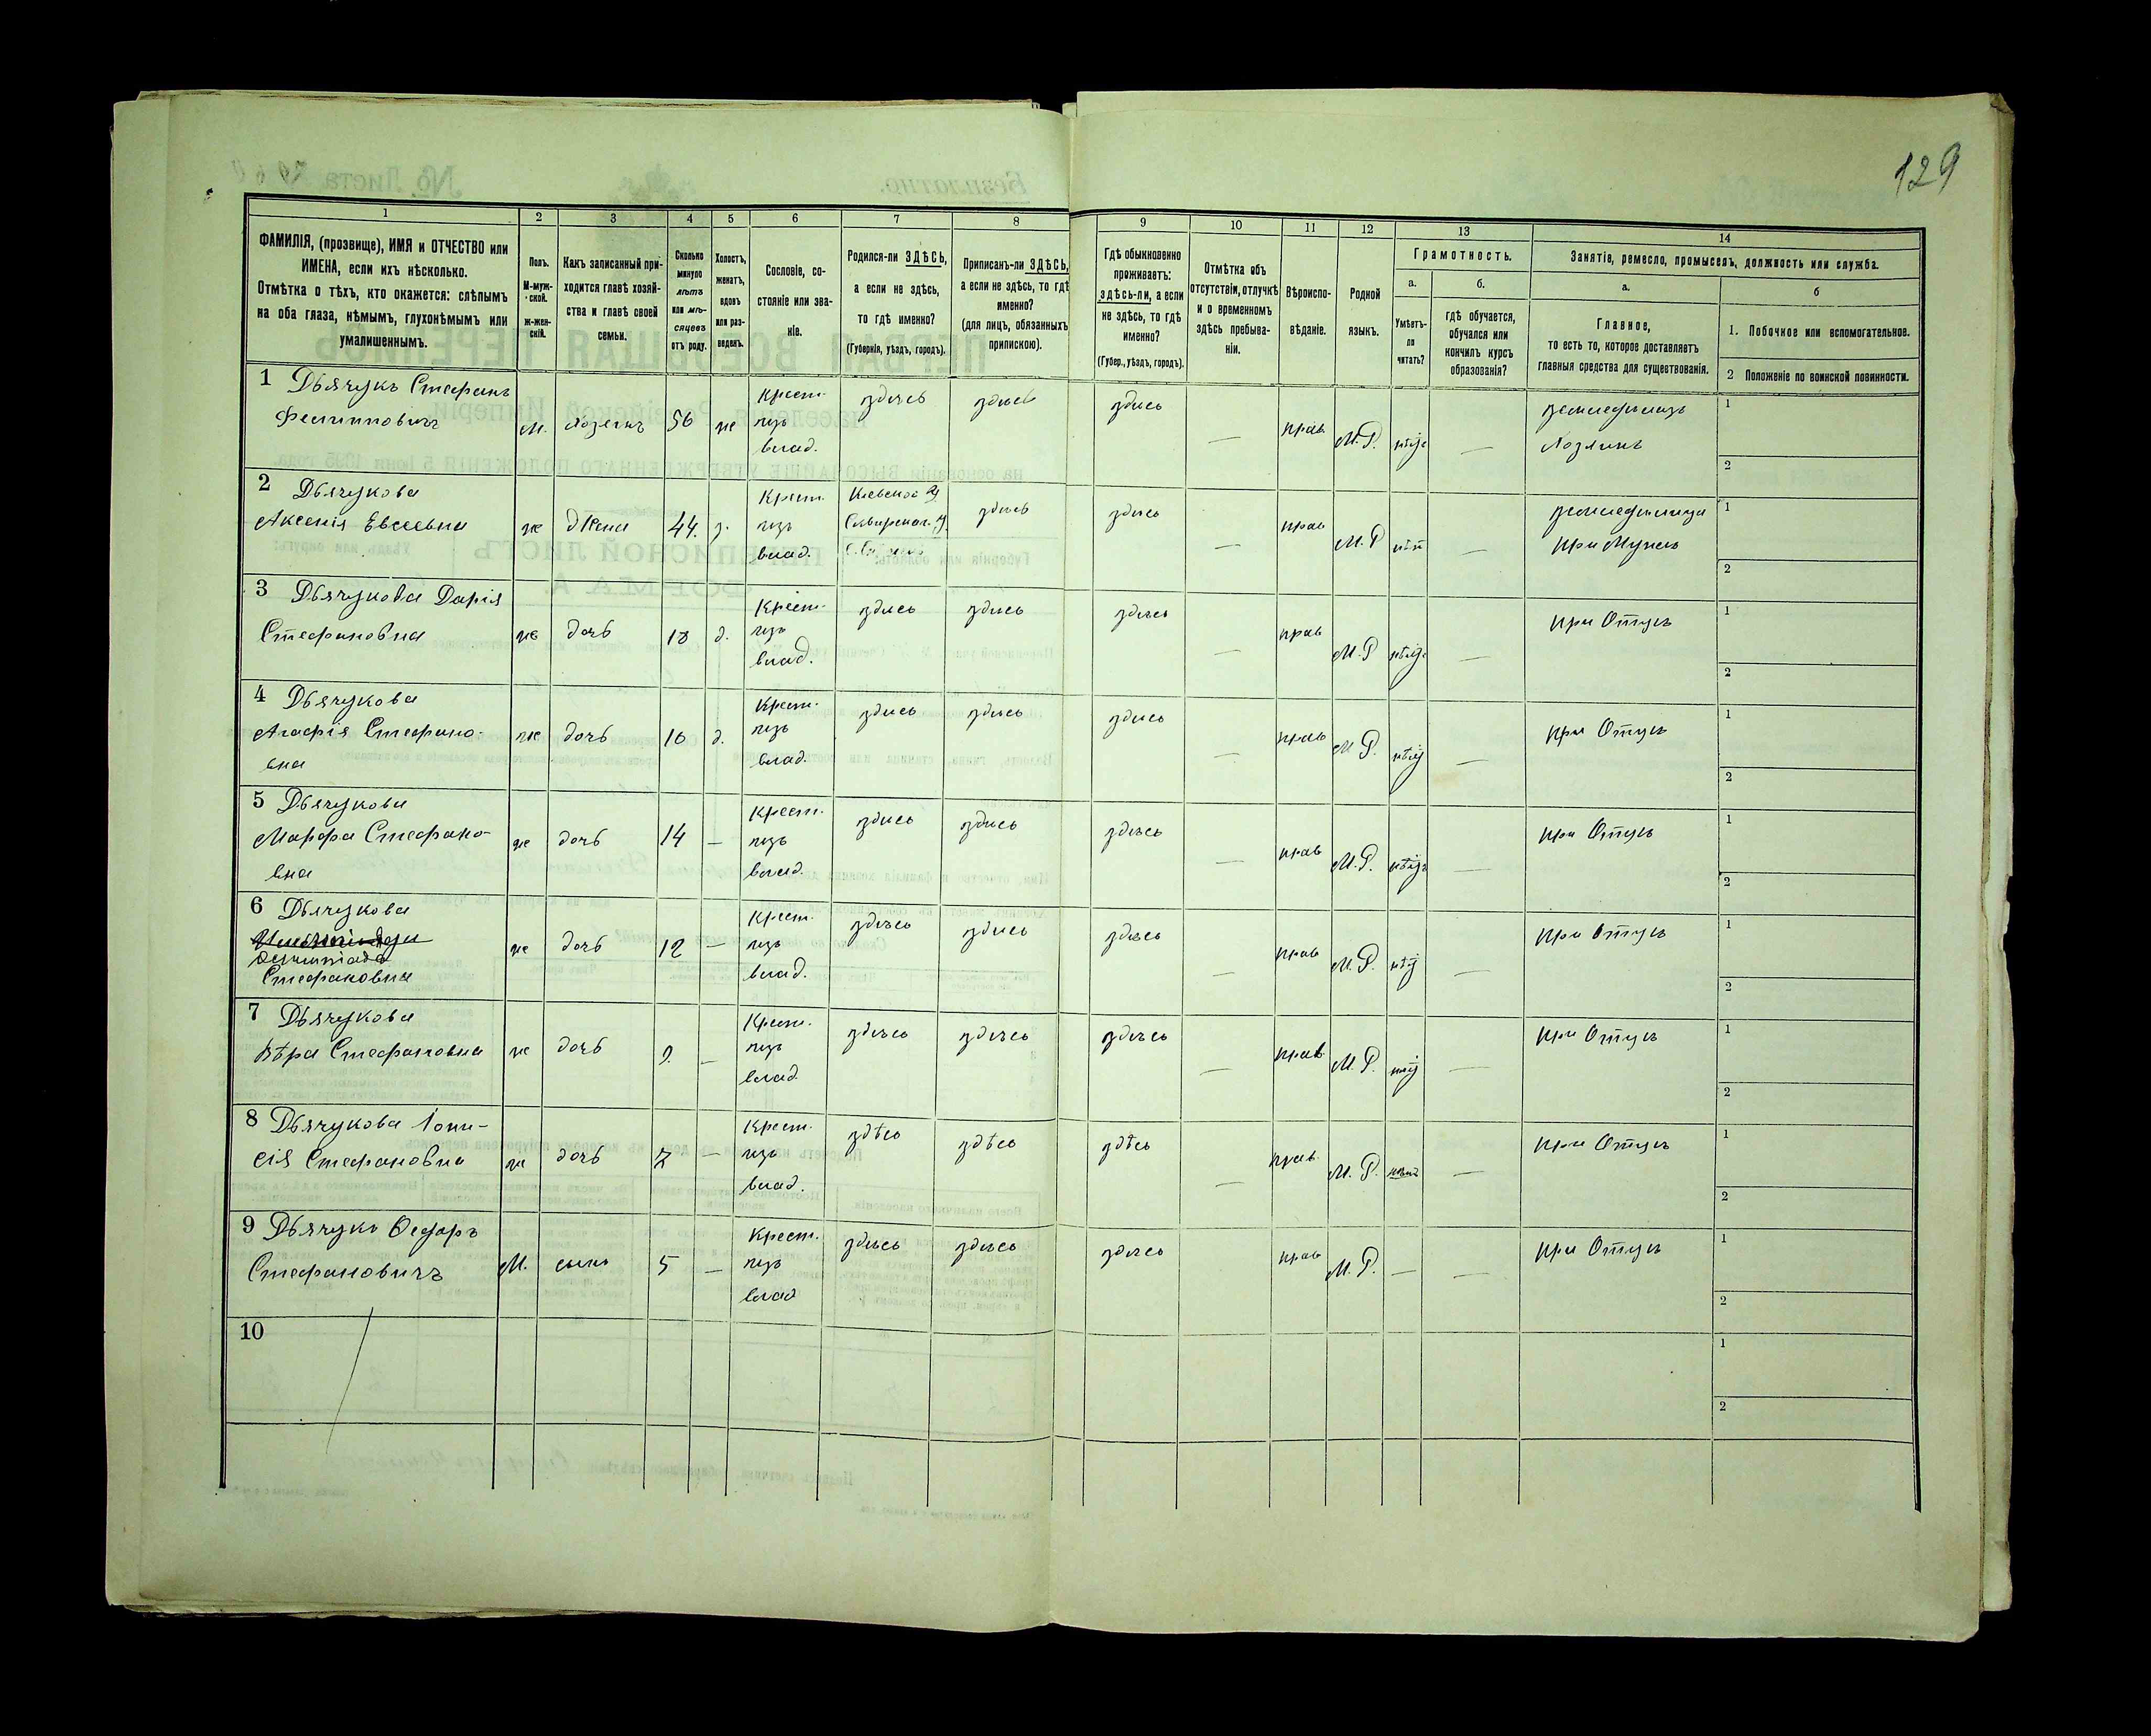 129
1
2
3
4
5
6
7
8
9
10
11
12
13
14
ФАМИЛІЯ, (прозвище), ИМЯ и ОТЧЕСТВО или
ИМЕНА, если ихъ нѣсколько.
Отмѣтка о тѣхъ, кто окажется: слѣпымъ
на оба глаза, нѣмымъ, глухонѣмымъ или
умалишеннымъ.
Полъ.
М-муж-
ской.
ж-жен-
скій.
Какъ записанный при-
ходится главѣ хозяй-
ства и главѣ своей
семьи.
Сколько
минуло
лѣтъ
или мѣ-
сяцевъ
отъ роду.
Холостъ,
женатъ,
вдовъ
или раз-
веденъ.
Сословіе, со-
стояніе или зва-
ніе.
Родился-ли ЗДѢСЬ,
а если не здѣсь,
то гдѣ именно?
(Губернія, уѣздъ, городъ).
Приписанъ-ли ЗДѢСЬ,
а если не здѣсь, то гдѣ
именно?
(для лицъ, обязанныхъ
припискою).
Гдѣ обыкновенно
проживаетъ:
здѣсь-ли, а если
не здѣсь, то гдѣ
именно?
(Губер., уѣздъ, городъ).
Отмѣтка объ
отсутствіи, отлучкѣ
и о временномъ
здѣсь пребыва-
ніи.
Вѣроиспо-
вѣданіе.
Родной
языкъ.
Грамотность.
а.
Умѣетъ-
ли
читать?
б.
гдѣ обучается,
обучался или
кончилъ курсъ
образованія?
Занятія, ремесло, промыселъ, должность или служба.
а.
Главное,
то есть то, которое доставляетъ
главныя средства для существованія.
б
1. Побочное или вспомогательное.
2 Положеніе по воинской повинности.
1 Дьячукъ Стефанъ
Филипповичъ
М. хозяинъ 56 же
крест.
изъ
влад.
здѣсь здѣсь здѣсь — прав М.Р. —
земледѣлецъ
Хозяинъ
1
2
2 Дьячукова
Аксенія Евсеевна
же жена 44.
Крест.
изъ
влад.
Кіевской Г.
Сквирскаго у.
здѣсь здѣсь — прав М.Р —
при Мужѣ
1
2
3 Дьячукова Дарія
Стефановна
же дочь 18 д.
Крест.
изъ
влад.
здѣсь здѣсь здѣсь — прав М.Р —
при Отцѣ
1
2
4 Дьячукова
Агафія Стефано-
вна
же дочь 16 д.
Крест.
изъ
влад.
здѣсь здѣсь здѣсь — прав М.Р. —
при Отцѣ
1
2
5 Дьячукова
Марфа Стефано-
вна
же дочь 14 —
Крест.
изъ
влад.
здѣсь здѣсь здѣсь — прав М.Р. —
при Отцѣ
1
2
6 Дьячукова
Стефановна
же дочь 12 —
Крест.
изъ
влад.
здѣсь здѣсь здѣсь — прав М.Р. —
при Отцѣ
1
2
7 Дьячукова
Вѣра Стефановна
же дочь 9. —
Крест.
изъ
влад.
здѣсь здѣсь здѣсь — прав. М.Р. —
при Отцѣ
1
2
8 Дьячукова
Стефановна
же дочь 7 —
Крест.
изъ
влад.
здѣсь здѣсь здѣсь — прав. М.Р. —
при Отцѣ
1
2
9 Дьячукъ Ѳедоръ
Стефановичъ
М. сынъ 5 —
Крест.
изъ
влад
здѣсь здѣсь здѣсь прав М.Р. — —
при Отцѣ
1
2
10
1
2